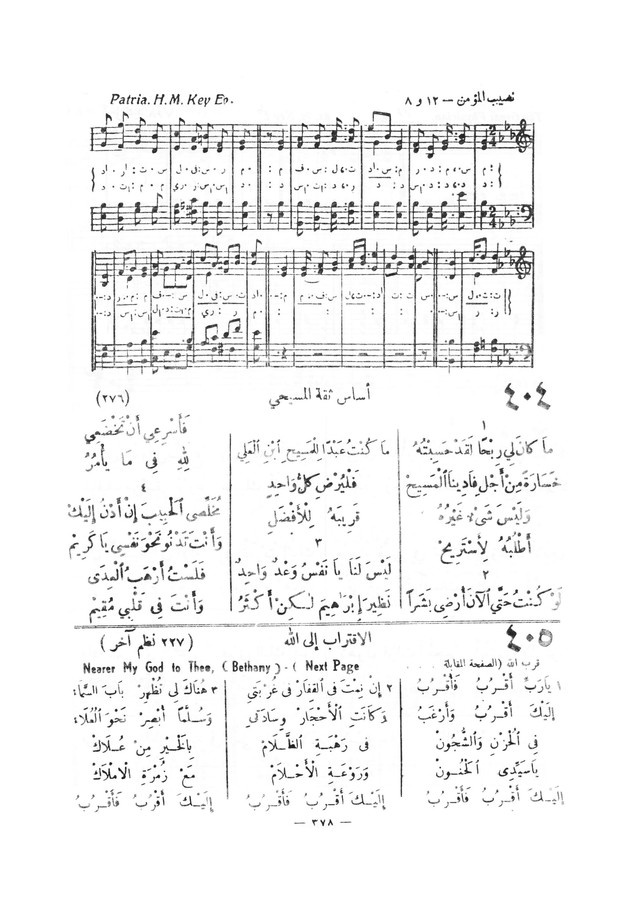 Patria. H. M. Key Eb.
نصيب المؤمن — ١٢ و ٨
٤٠٤
أساس ثقة المسيحي
(٢٧٦)
١
مَا كَانَ لِي رِبْحًا لَقَدْ حَسِبْتُهُ
خَسَارَةً مِنْ أَجْلِ فَادِينَا الْمَسِيحْ
وَلَيْسَ شَيْءٌ غَيْرُهُ
أَطْلُبُهُ لِأَسْتَرِيحْ
٢
لَوْ كُنْتُ حَتَّى الْآنَ أُرْضِي بَشَرًا
مَا كُنْتُ عَبْدًا لِلْمَسِيحِ ابْنِ الْعَلِي
فَلْيُرْضِ كُلُّ وَاحِدٍ
قَرِيبَهُ لِلْأَفْضَلِ
٣
لَيْسَ لَنَا يَا نَفْسُ وَعْدٌ وَاحِدٌ
نَظِيرَ إِبْرَاهِيمَ لٰكِنْ أَكْثَرُ
فَأَسْرِعِي أَنْ تَخْضَعِي
لِلهِ فِي مَا يَأْمُرُ
٤
مُخَلِّصِي الْحَبِيبَ إِنْ أَدْنُ إِلَيْكْ
وَأَنْتَ تَدْنُو نَحْوَ نَفْسِي يَا كَرِيمْ
فَلَسْتُ أَرْهَبُ الْعِدَى
وَأَنْتَ فِي قَلْبِي مُقِيمْ
٤٠٥
الاقتراب إلى الله
(٢٢٧ نظم آخر)
قرب الله (الصفحة المقابلة
Nearer My God to Thee, (Bethany) - ( Next Page
١ يَا رَبِّ أَقْرُبُ فَأَقْرُبُ
إِلَيْكَ أَقْرُبُ وَأَرْغَبُ
فِي الْحُزْنِ وَالشُّجُونْ
يَا سَيِّدِي الْحَنُونْ
إِلَيْكَ أَقْرُبُ فَأَقْرُبُ
٢ إِنْ نِمْتُ فِي الْقِفَارْ فِي غُرْبَتِي
وَكَانَتِ الْأَحْجَارْ وِسَادَتِي
فِي رَهْبَةِ الظَّلَامْ
وَرَوْعَةِ الْأَحْلَامْ
إِلَيْكَ أَقْرُبُ فَأَقْرُبُ
٣ هُنَاكَ لِي تُظْهِرْ بَابَ السَّمَاءْ
وَسُلَّمًا أُبْصِرْ نَحْوَ الْعُلَاءْ
بِالْخَيْرِ مِنْ عُلَاكْ
مَعْ زُمْرَةِ الْأَمْلَاكْ
إِلَيْكَ أَقْرُبُ فَأَقْرُبُ
— ٣٧٨ —